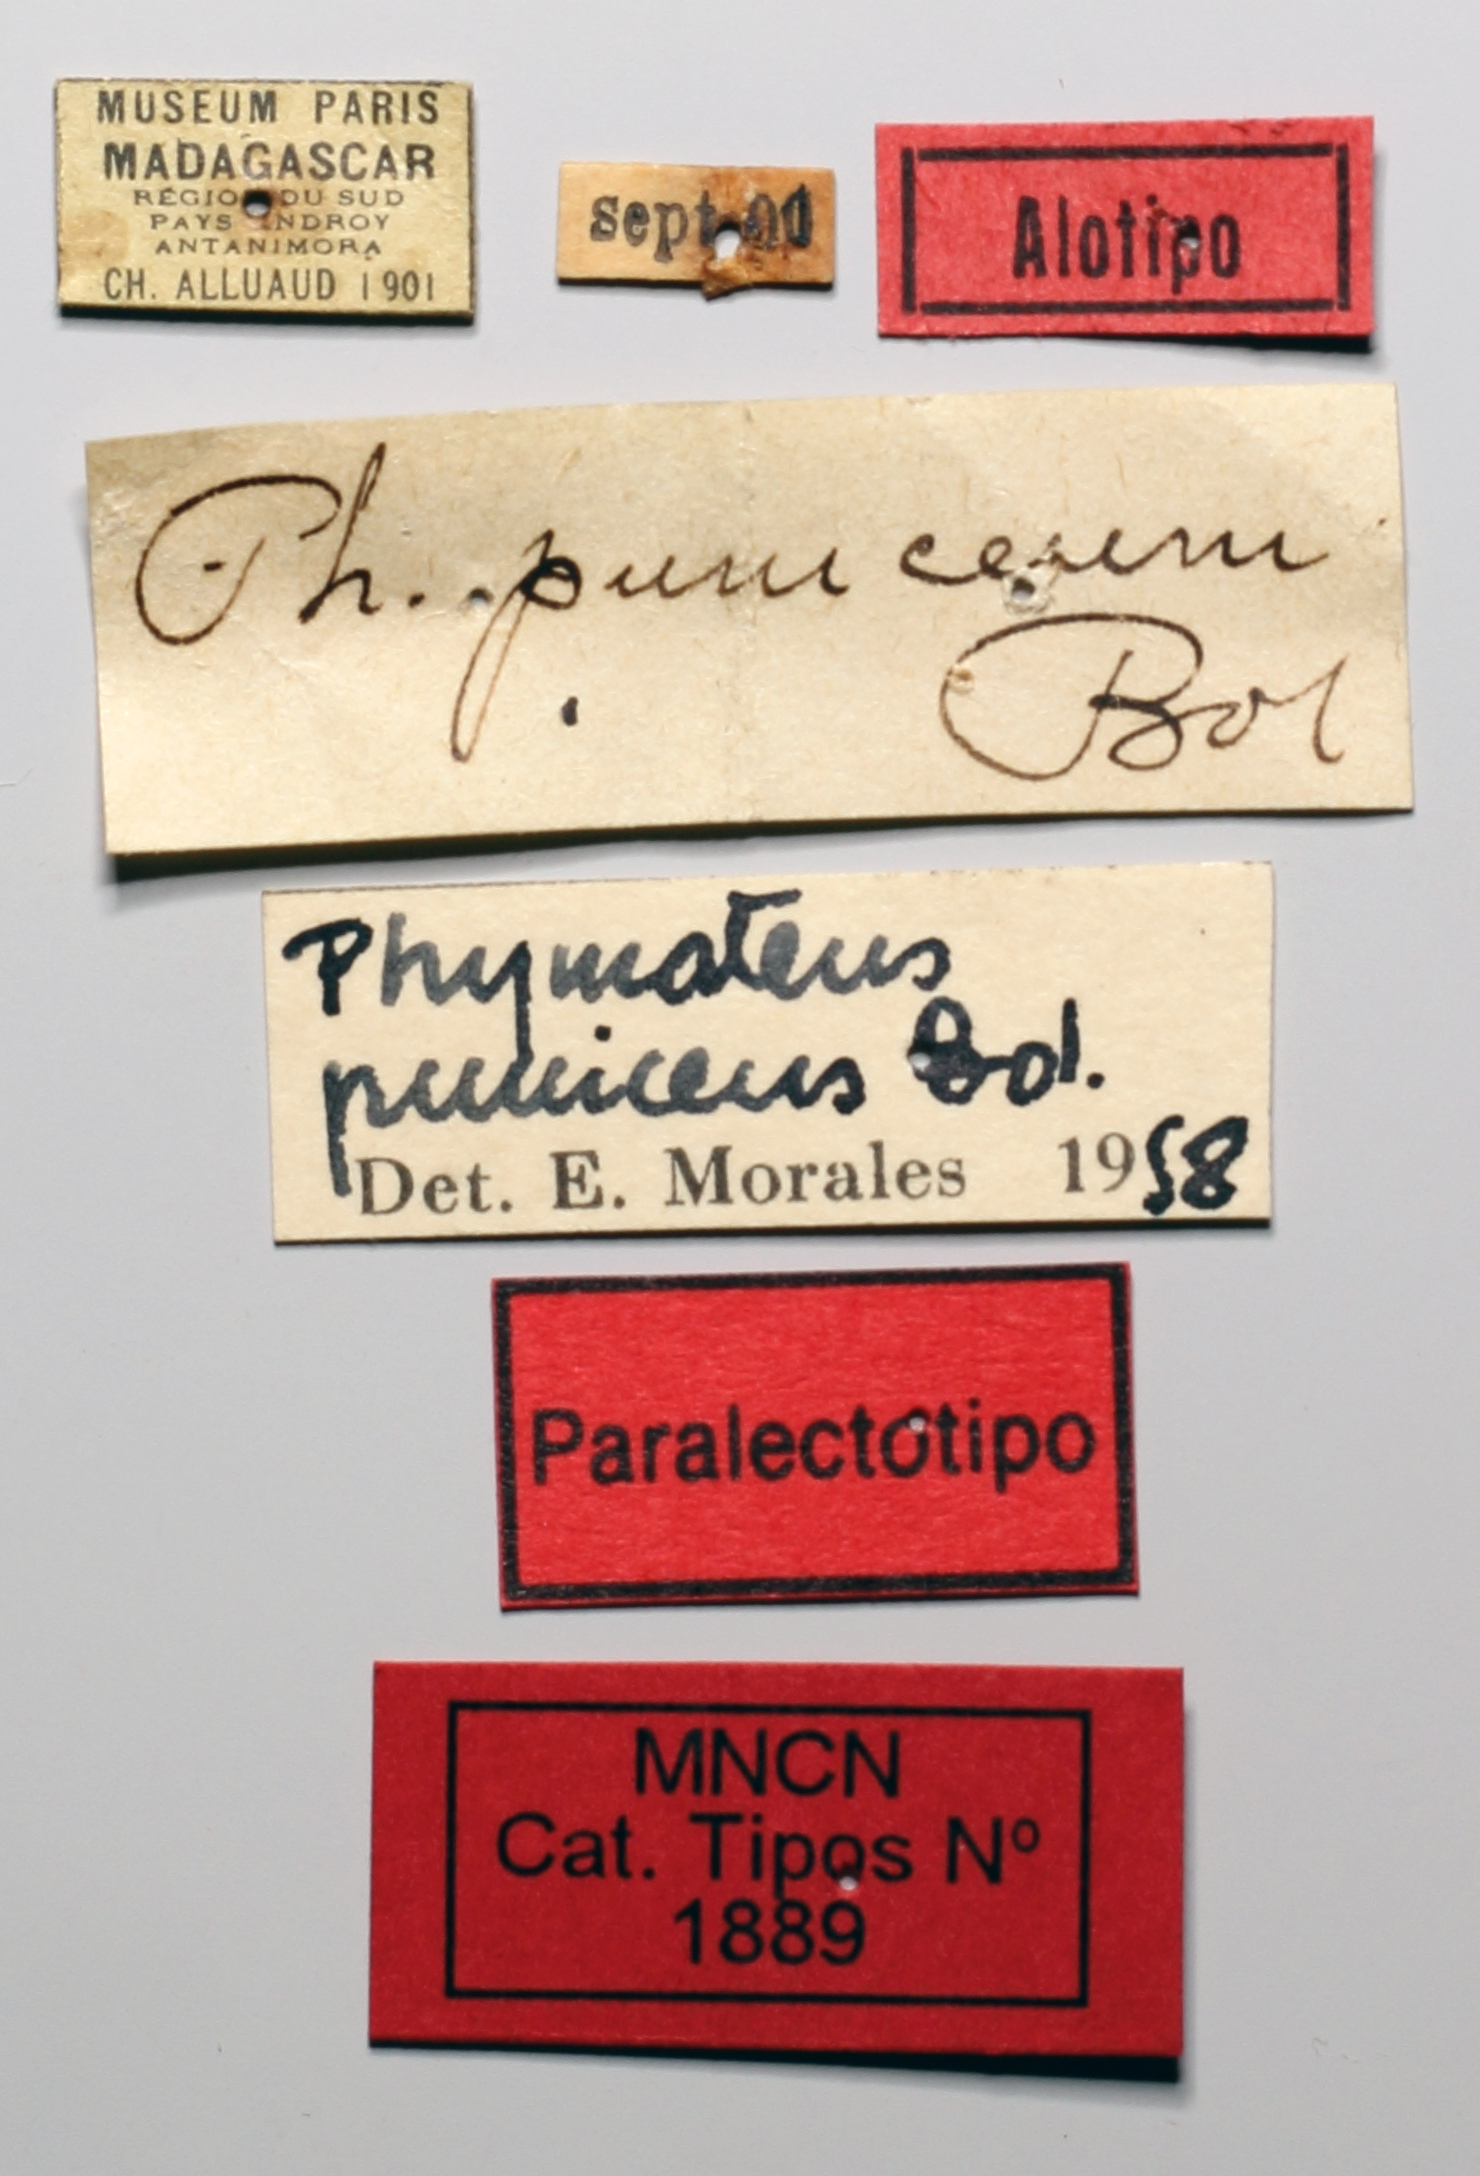 MUSEUM PARIS
MADAGASCAR
RÉGION DU SUD
PAYS ANDROY
ANTANIMORA
CH. ALLUAUD 1901
sept
Alotipo
Ph. puniceum
Bol
Phymateus
puniceus Bol.
Det. E. Morales 1958
Paralectotipo
MNCN
Cat. Tipos Nº
1889